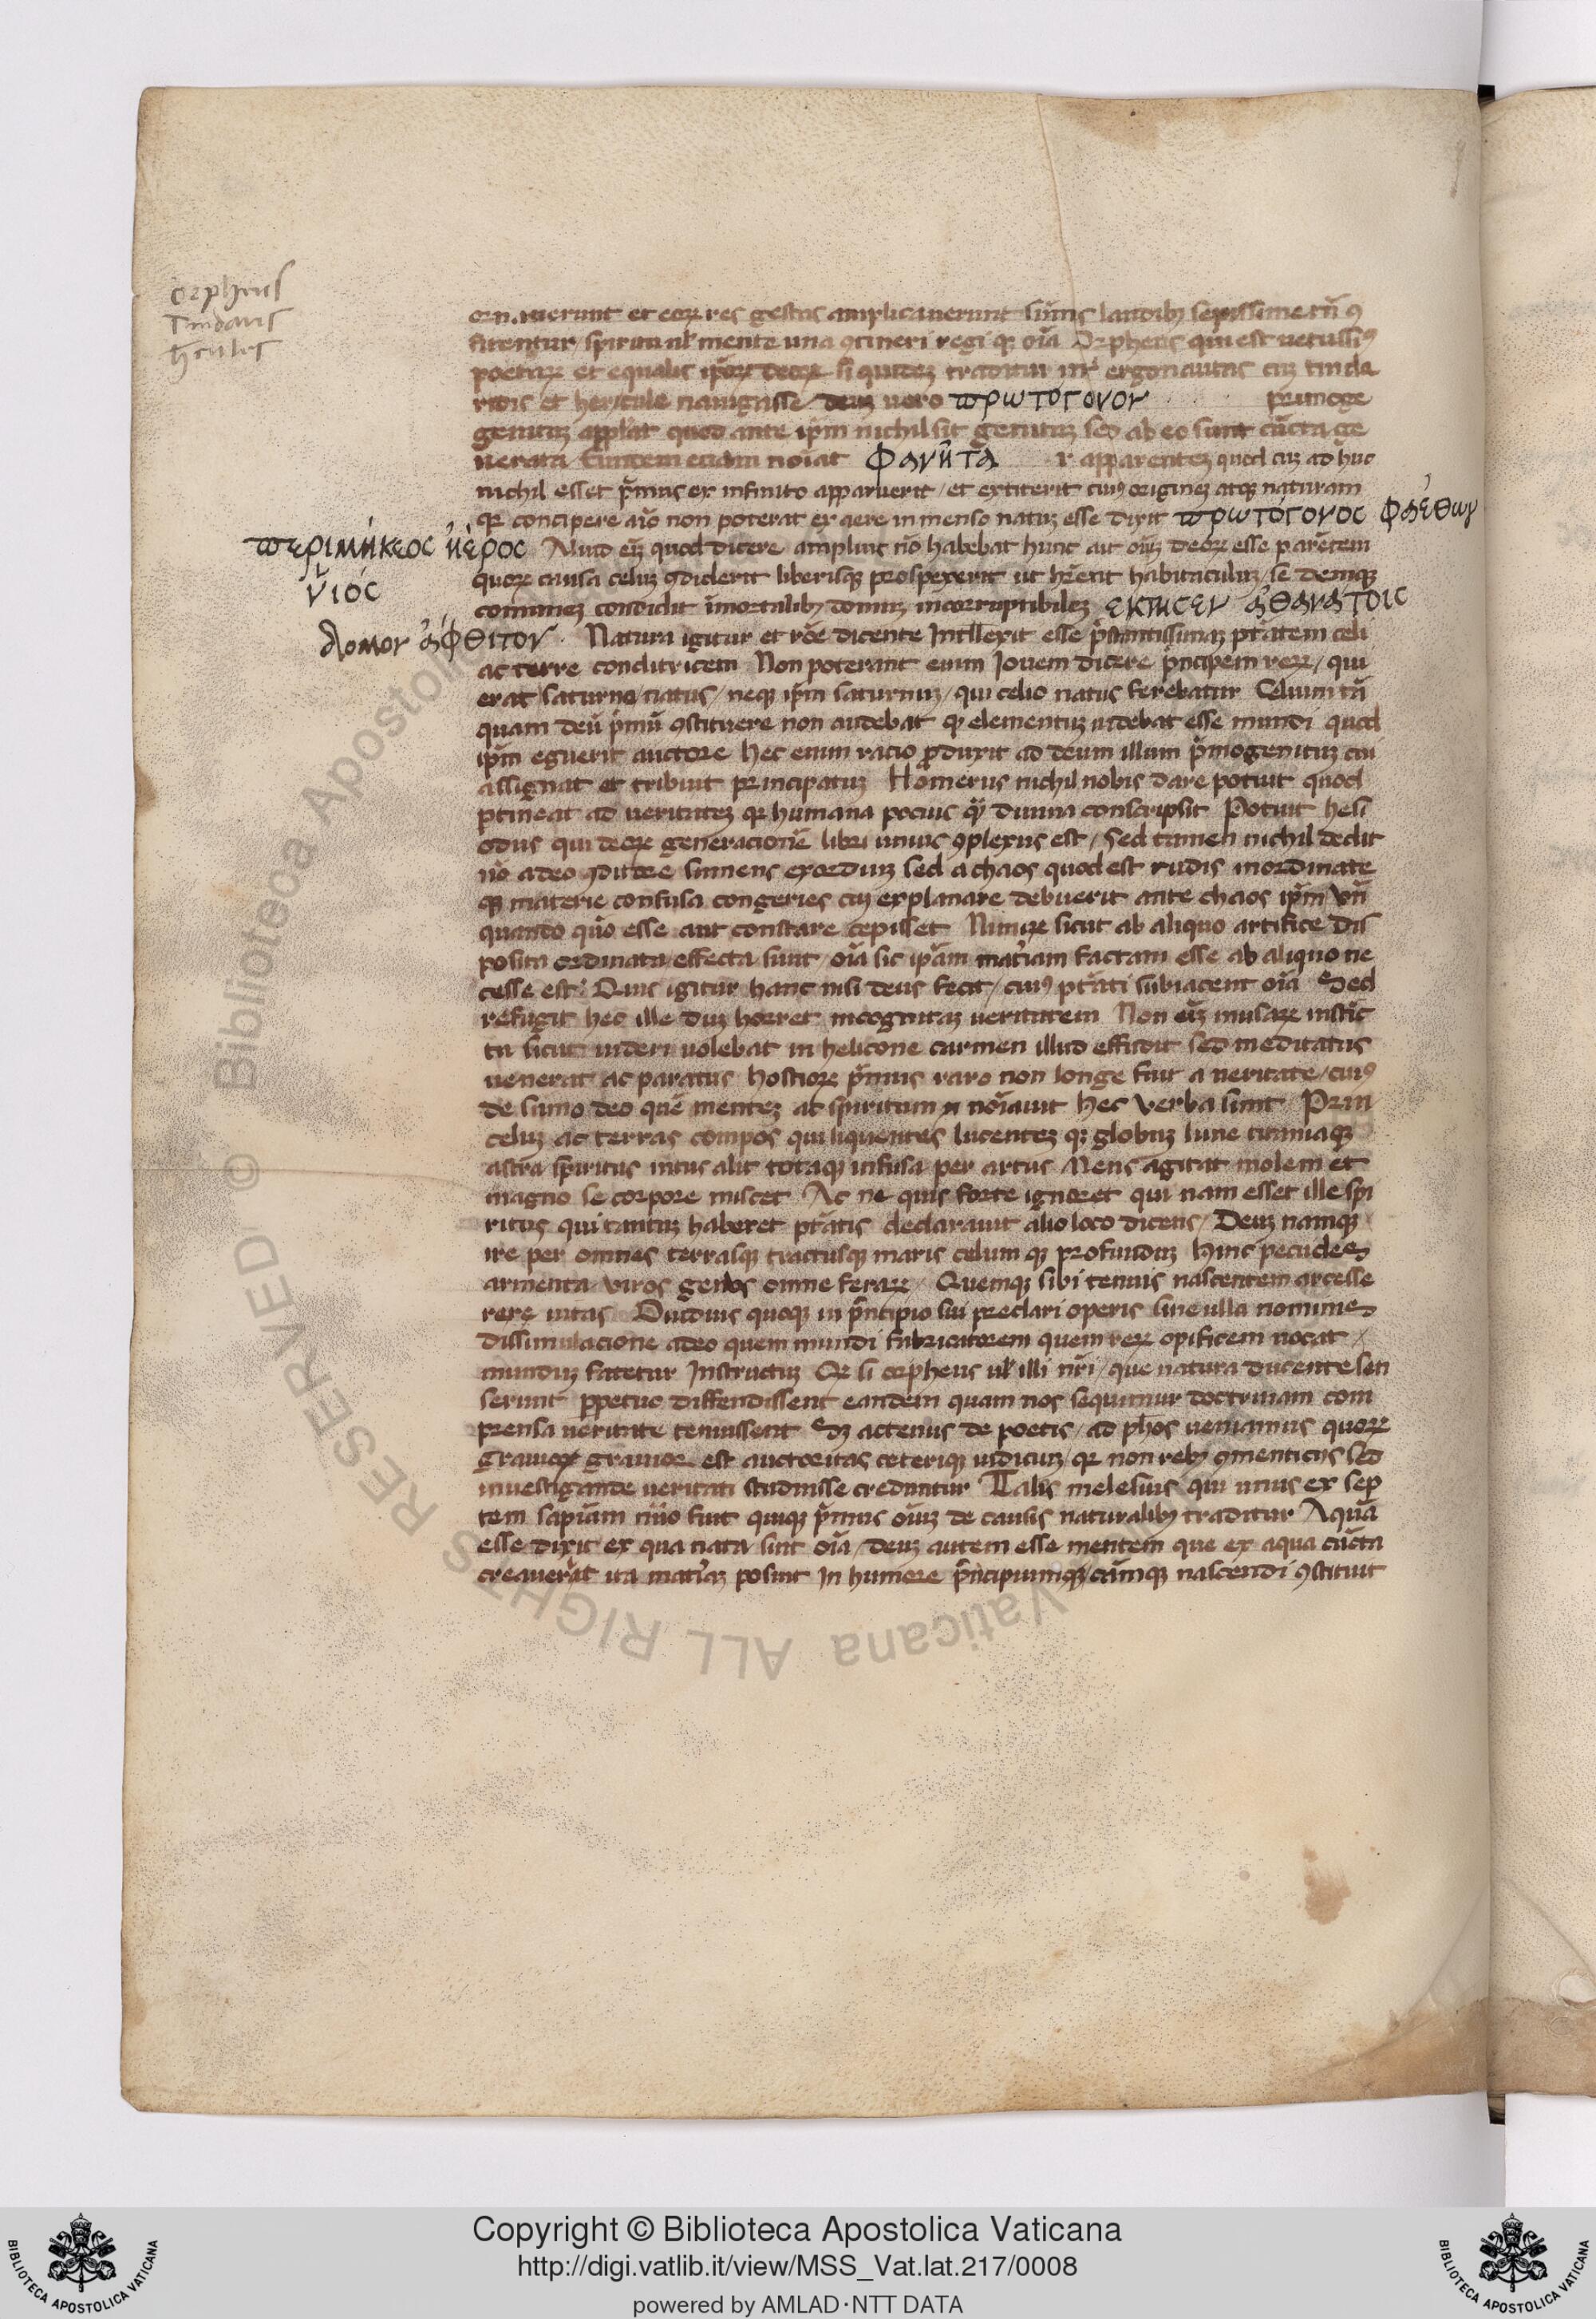 Orpheus
Tindaris
hercules
ornauerunt et eorꝝ res gestas amplicauerunt sum̄is laudibꝫ sepissime tn̄ ꝯ
fitentur spiritu ul' mente una ꝯtineri regi qꝫ oīa Orpheus qui est uetussiꝰ
poetarꝝ et equalis ip̄orꝝ deorꝝ si quideꝫ traditur int̾ ergonautas cuꝫ tinda
ridis et hercule nauigasse deuꝫ uero πρωτογονον primoge
genituꝫ apꝑlat quod ante ip̄m nichil sit genituꝫ sed ab eo sunt cūcta ge
nerata Eundem eciam noīat φανήτα r apparenteꝫ quod cuꝫ ad huc
nichil esset p̄mus ex infinito apparuerit / et extiterit cuiꝰ origineꝫ atqꝫ naturam
qꝛ concipere aīo non poterat ex aere in menso natuꝫ esse dixit πρωτόγονος φαέθων
περιμήκεος ἠέρος Aliud eīꝫ quod dicere amplius nō habebat hunc ait oīuꝫ deorꝝ esse parētem
ὑιός
quorꝝ causa celuꝫ ꝯdiderit liberisqꝫ prospexerit ut hr̄ent habitaculuꝫ / se demqꝫ
comuneꝫ condidit īmortalibꝫ domuꝫ incorruptibileꝫ εκτησεν ἀθανατοις
δομον ἀφθιτον. Natura igitur et rōe dicente Intllexit esse p̄stantissimaꝫ ptātem celi
ac terre conditricem Non poterant enim Iouem dicere p̄ncipem rerꝝ / qui
erat saturno natus / neqꝫ ip̄m saturnuꝫ / qui celio natus ferebatur Celium tā
quam deū p̄mū ꝯstituere non audebat qꝛ elementuꝫ uidebat esse mundi quod
ip̄m eguerit auctore hec enim racio ꝓduxit ad deum illum p̄mogenituꝫ cui
assignat et tribuit principatuꝫ Homerus nichil nobis dare potuit quod
ꝑtineat ad ueritateꝫ qꝛ humana pocius qꝫ̄ diuina conscripsit Potuit hesi
odus qui deorꝝ generacionē libri unius ꝯplexus est / Sed tamen nichil dedit
nō adeo ꝯditore sumens exordiuꝫ sed a chaos quod est rudis inordinate
qꝫ materie confusa congeries cuꝫ explanare debuerit ante chaos ip̄m vn̄
quando quō esse aut constare cepisset Nimirꝝ sicut ab aliquo artifice dis
posita ordinata effecta sunt oīa sic ip̄am mat̄iam factam esse ab aliquo ne
cesse est Quis igitur hanc nisi deus fecit / cuiꝰ ptāti subiacent oīa Sed
refugit hec ille duꝫ horret incognitaꝫ ueritatem Non eīꝫ musarꝝ instīc
tu sicut uideri uolebat in helicone carmen illud effudit sed meditatus
uenerat ac paratus hostiorꝝ p̄mus raro non longe fuit a ueritate / cuiꝰ
de sumo deo quē menteꝫ ac spiritum noīauit hec verba sunt Prin
celuꝫ ac terras compos qui liquentes lucenteꝫ qꝫ globuꝫ lune titaniaqꝫ
astra spiritus intus alit totaqꝫ infusa per artus Mens agitat molem et
magno se corpore miscet Ac ne quis forte ignoret qui nam esset ille spi
ritus qui tantuꝫ haberet ptātis declarauit alio loco dicens / Deuꝫ namqꝫ
ire per omnes terrasqꝫ tractusqꝫ maris celum qꝫ profunduꝫ hinc pecudes
armenta viros genus omne ferarꝝ / Quemqꝫ sibi tenuis nascentem arcesse
rere uitas Ouidius quoqꝫ in p̄ncipio sui preclari operis sine ulla nomines
dissimulacione adeo quem mundi fabricatorem quem rerꝝ opificem uocat
munduꝫ fatetur Instructuꝫ Qꝛ si orpheus ul' illi nr̄i / que natura ducente sen
serunt ꝑpetuo diffendissent eandem quam nos sequimur doctrinam com
prensa ueritate tenuissent Sꝫ actenus de poetis / ad ph̄os ueniamus quorꝝ
grauior est auctoritas ceterisqꝫ iudiciuꝫ / qꝛ non rebꝫ ꝯmenticiis sed
inuestigande ueritati studuisse creduntur Talis melesius qui unus ex sep
tem sapiām nūo fuit quiqꝫ p̄mus oīuꝫ de causis naturalibꝫ traditur Aquā
esse dixit ex qua nata sint oīa / deuꝫ autem esse mentem que ex aqua cūcta
creauerāt ita mat̄iaꝫ posuit In humore p̄ncipiumqꝫ / cāmqꝫ nascendi ꝯstituit
Copyright © Biblioteca Apostolica Vaticana
http://digi.vatlib.it/view/MSS_Vat.lat.217/0008
powered by AMLAD·NTT DATA